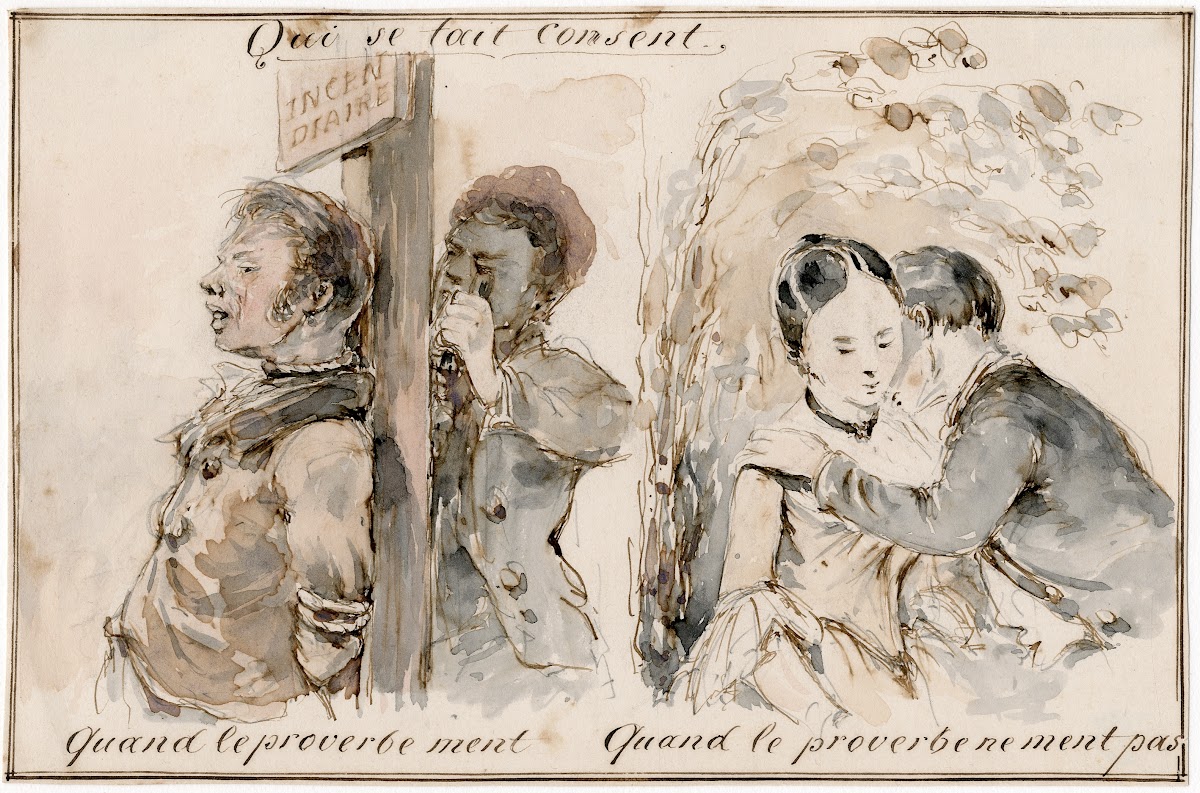 Qui se tait consent.
INCEN
DIAIRE
Quand le proverbe ment
Quand le proverbe ne ment pas